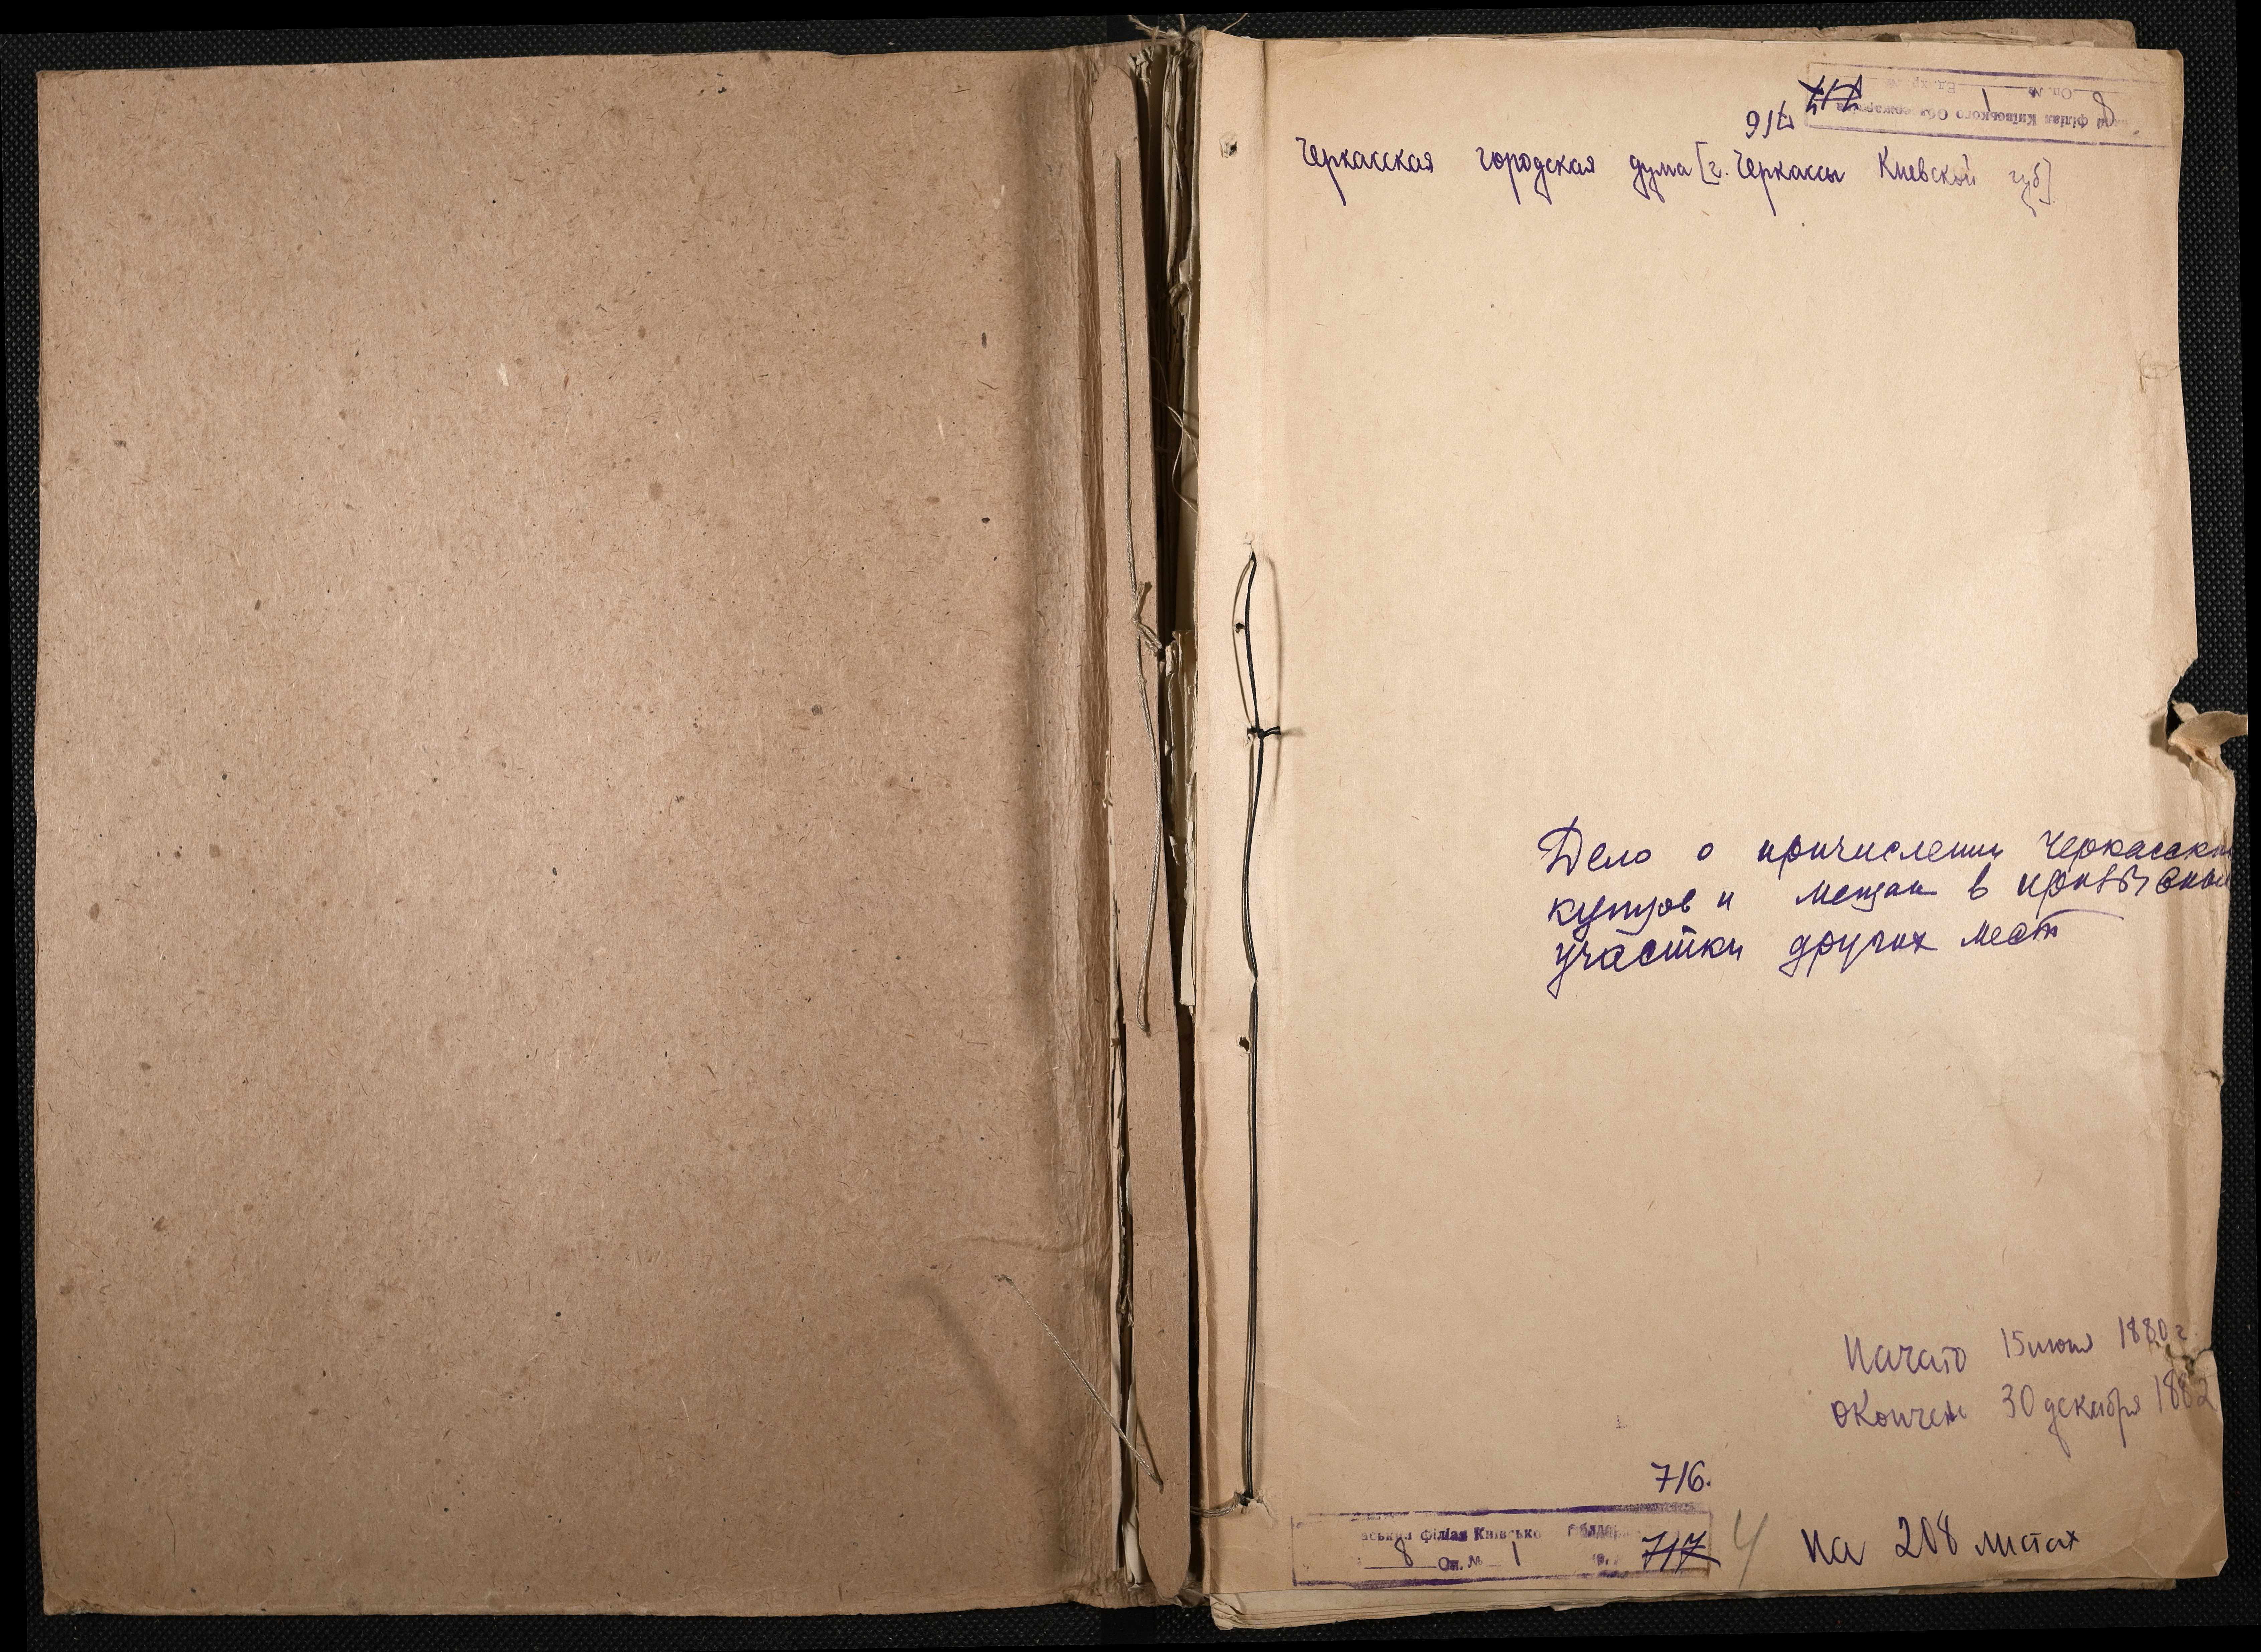 717
716
філіал Київського Облдержархіва
8
Оп. № 1 Ед. хр.
Черкасская городская дума [г. Черкассы Киевской губ]
Дело о причислении черкасски
купцов и мещан в призывные
участки других мест
Начато 15 июня 1880 г.
Окончен 30 декабря 1882
716.
ський філіал Київсько облдер
8 Оп. № 1 717
4 на 208 листах